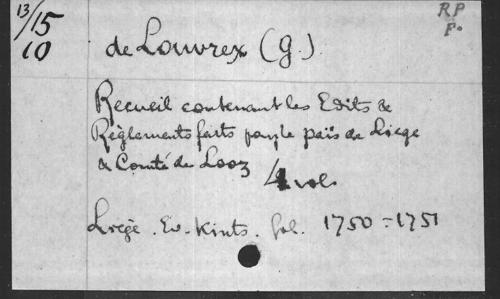 13/15
10
RP
F.
de Louvrex (G.)
Recueil contenant les Edits &
Règlements faits pour le païs de Liege
& Comté de Looz
4 vols
Liège . Ev. Kints . fol. 1750-1751